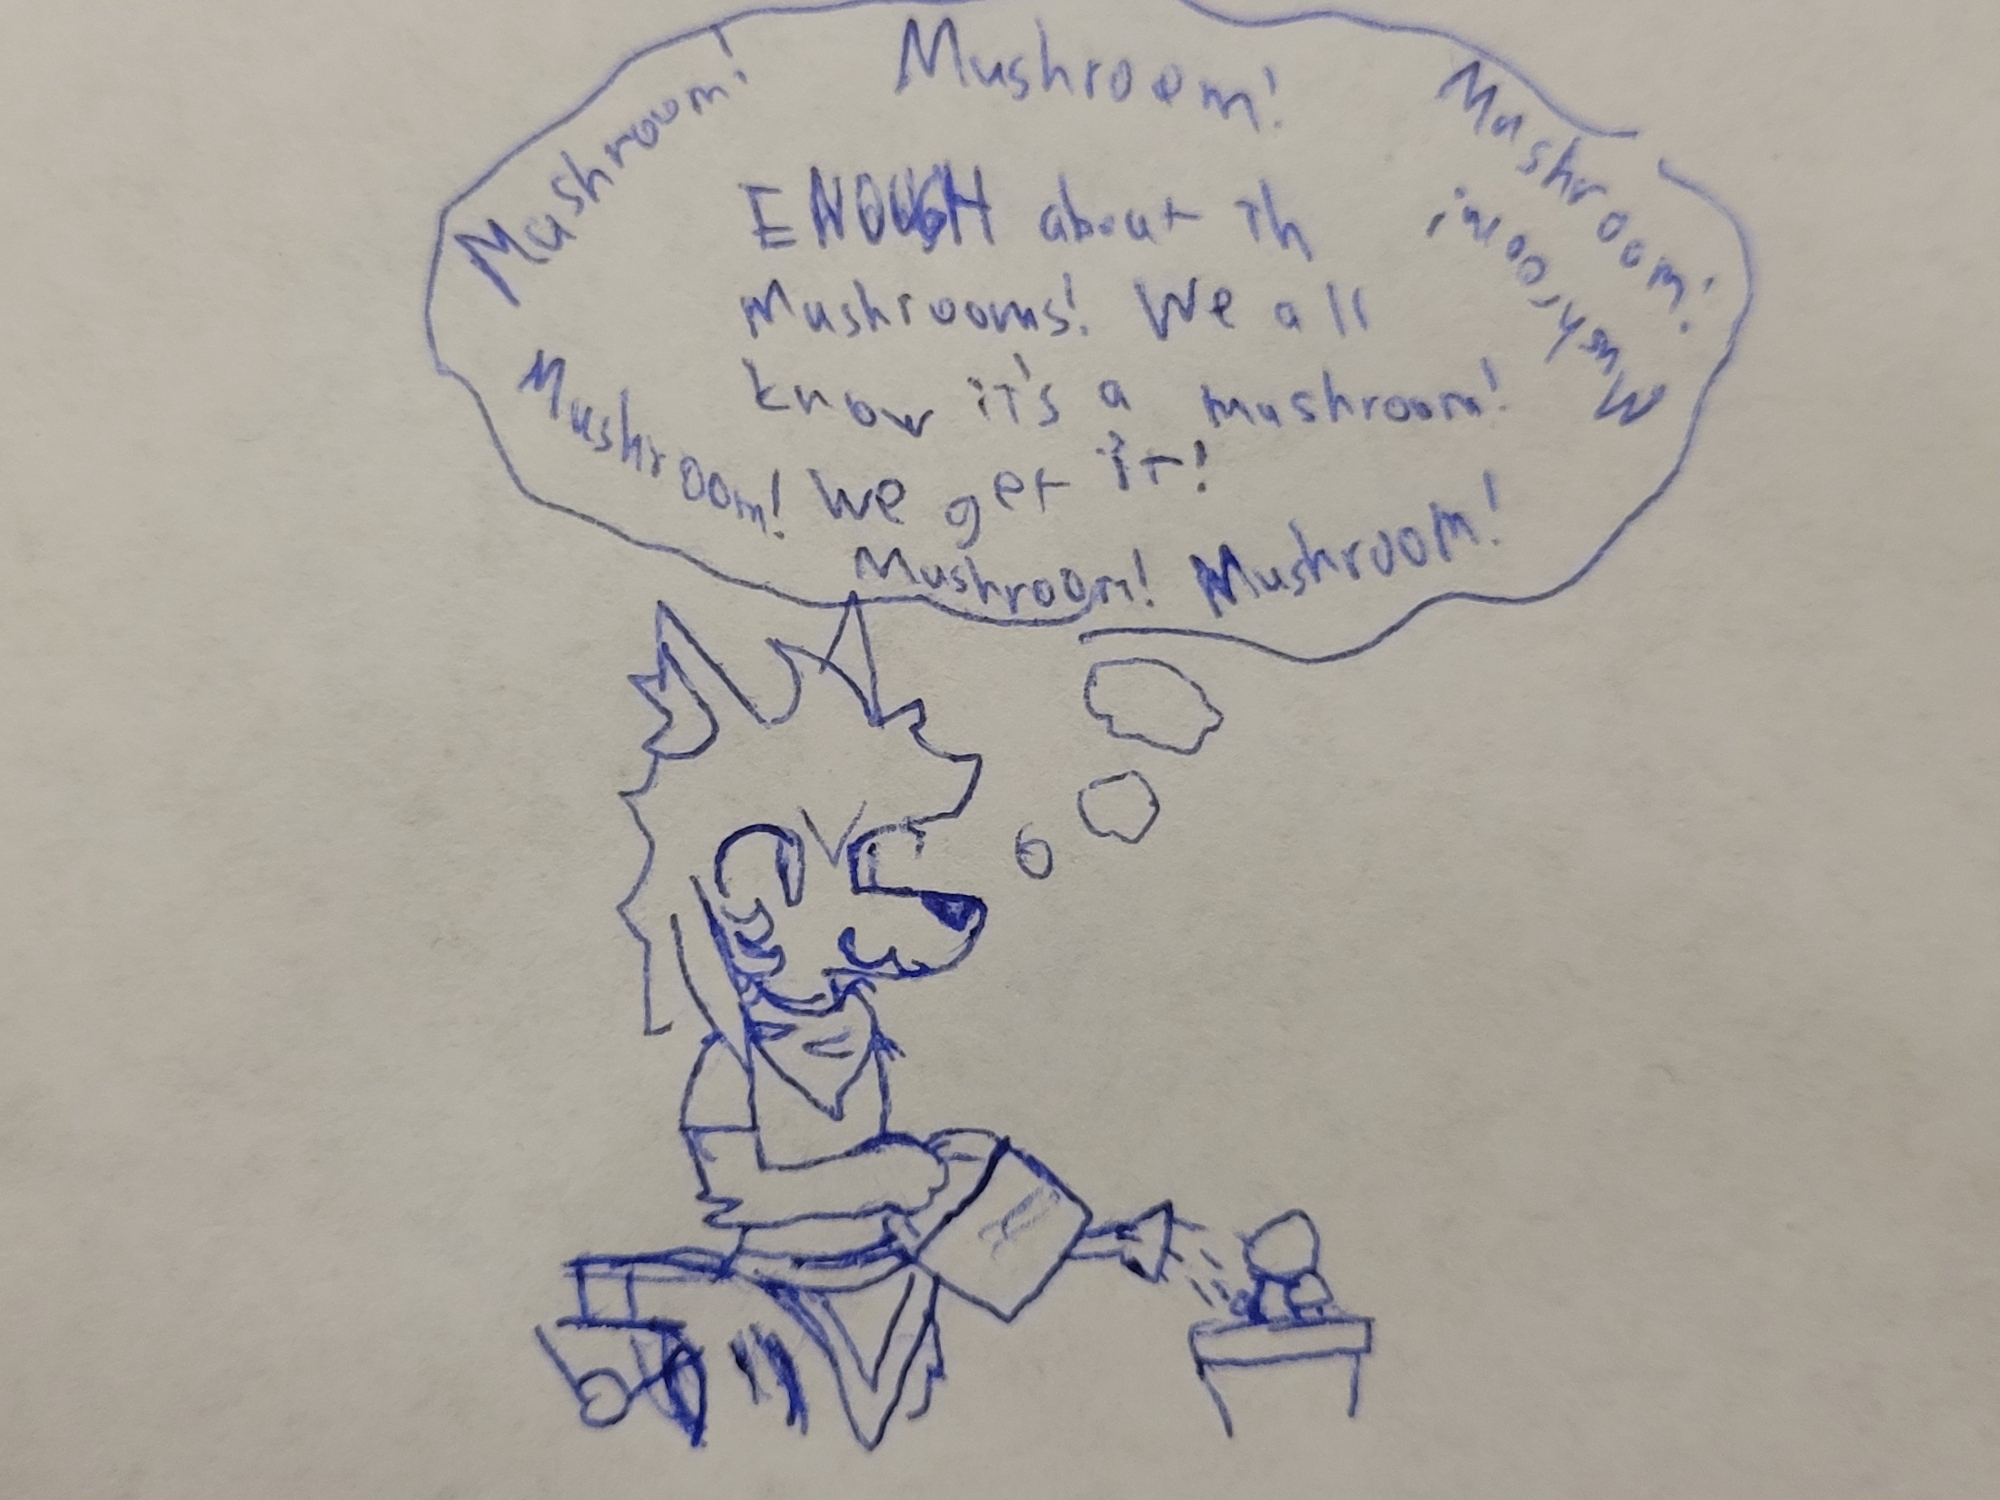 Mushroom!
Mushroom!
Mushroom!
Mushroom!
ENOUGH about th
Mushrooms! We all
know it's a mushroom!
We get it!
Mushroom!
Mushroom!
Mushroom!